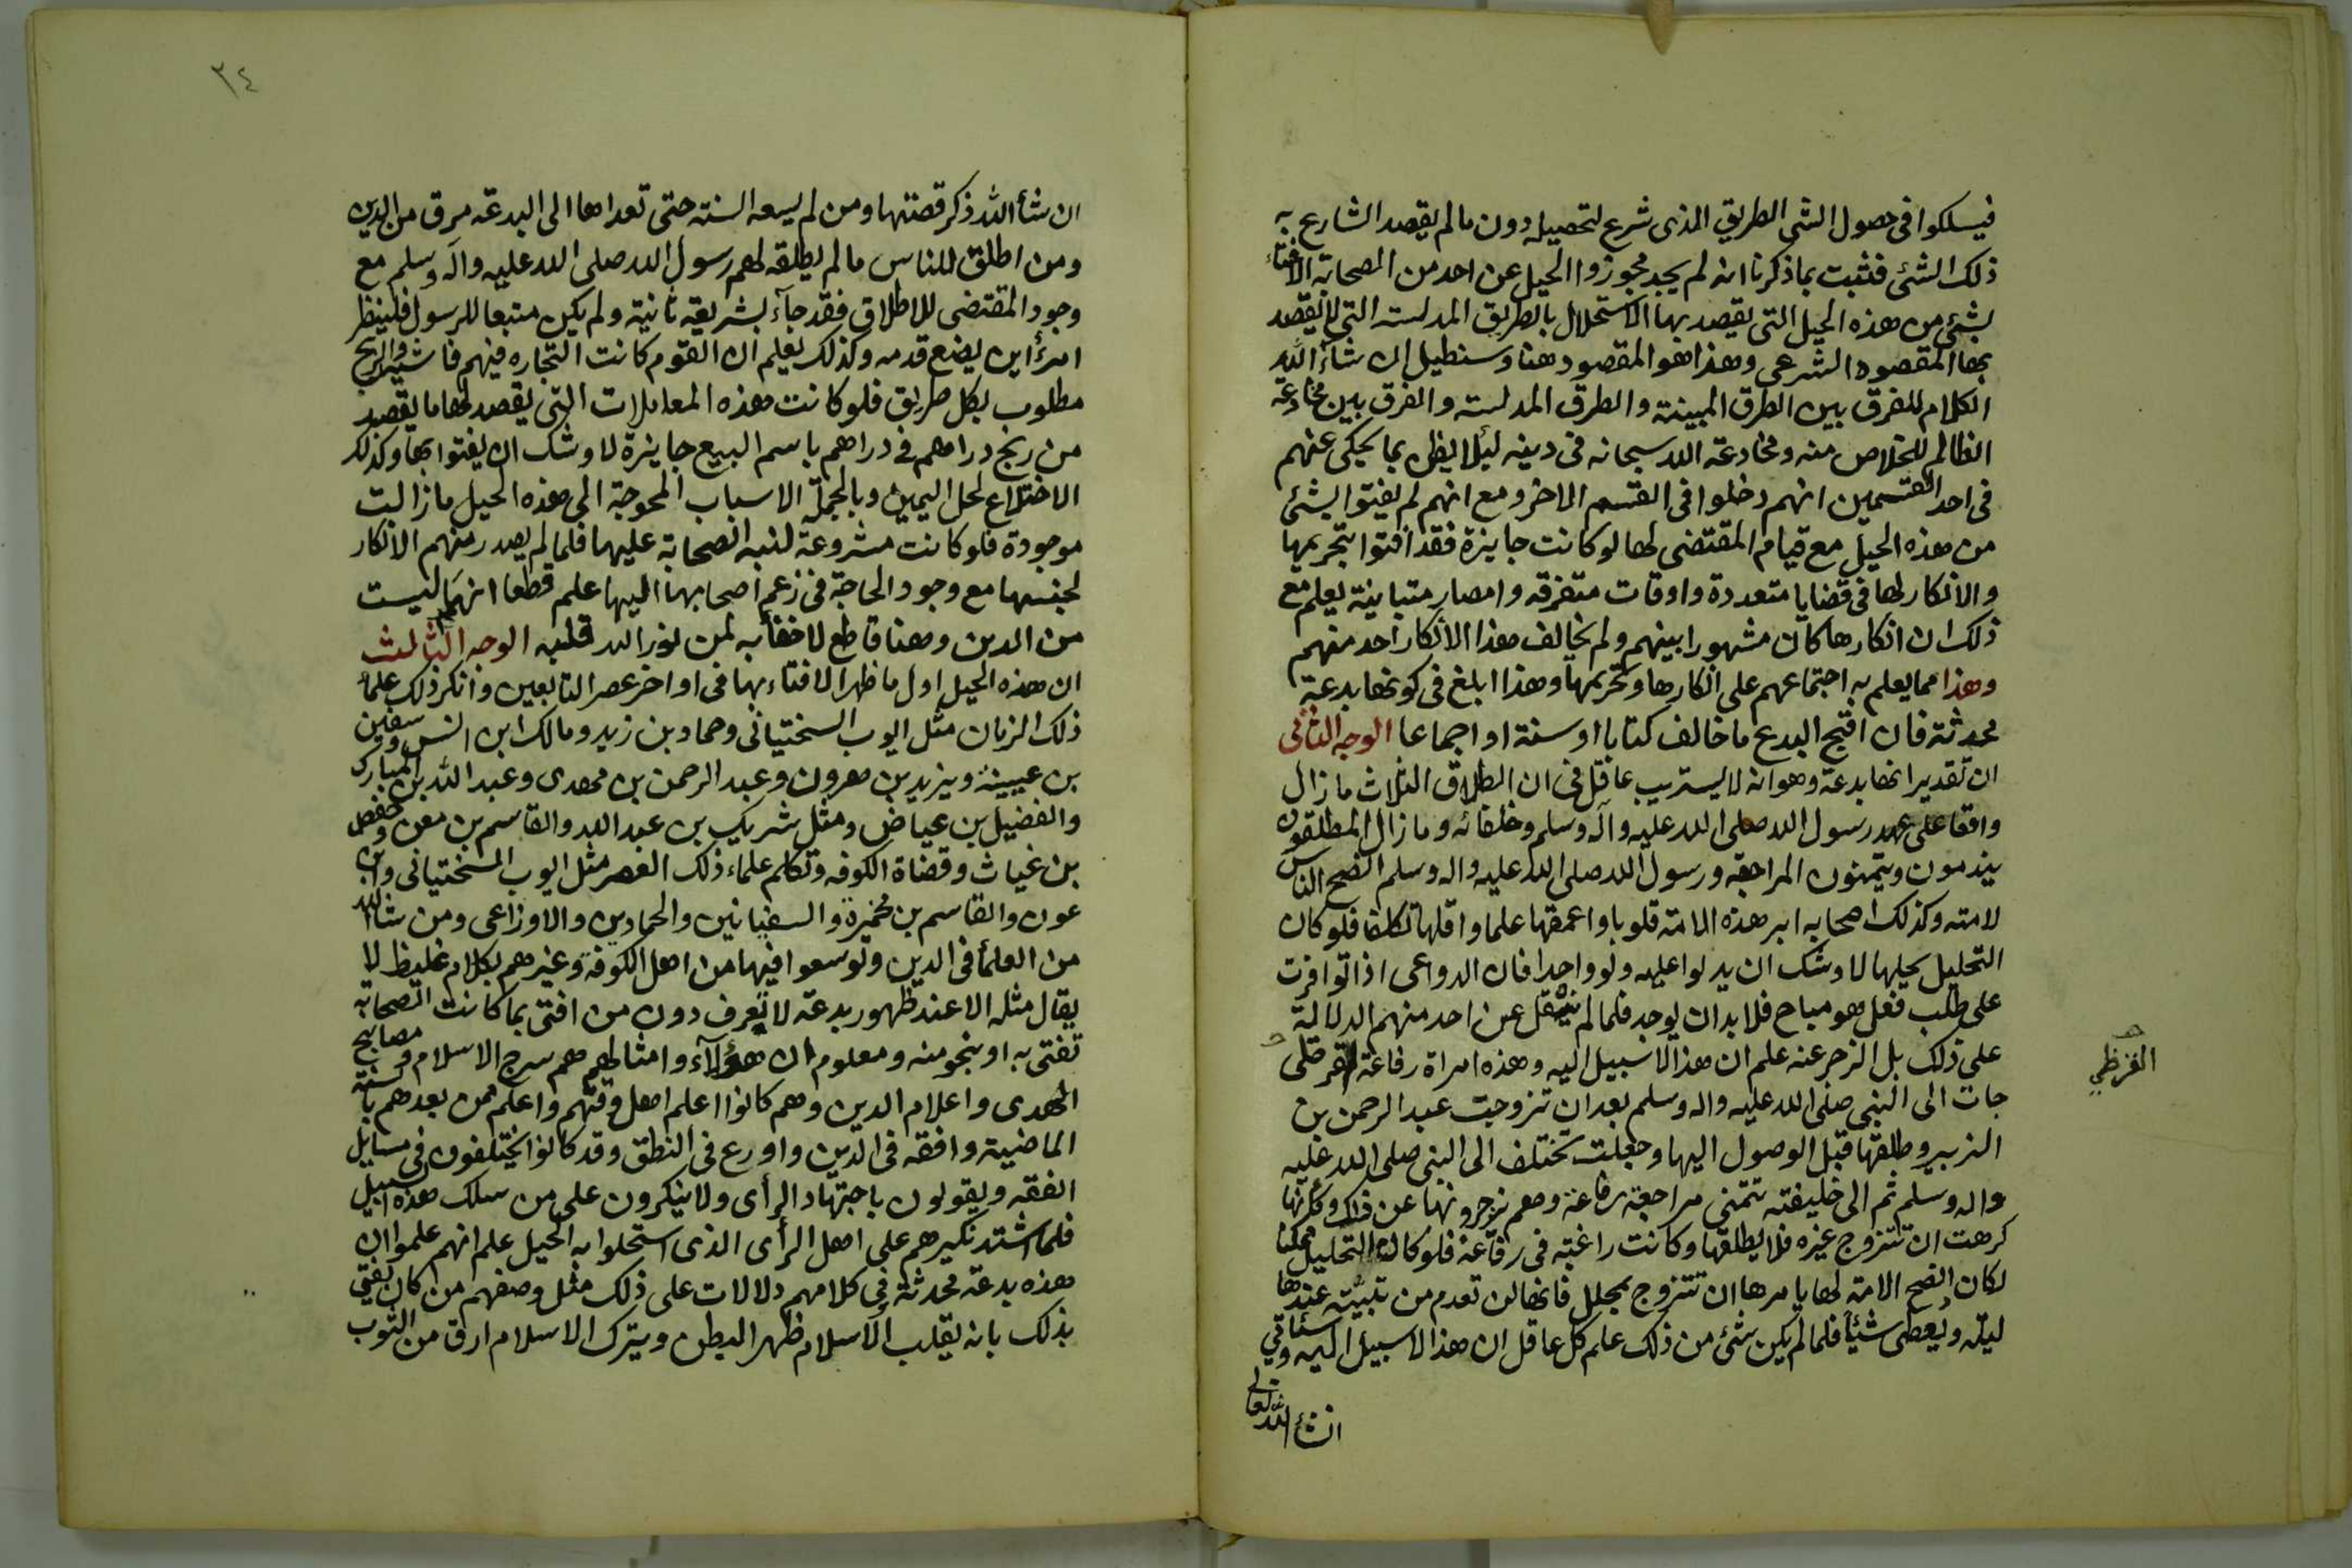 فيسلكوا فى حصول الشى الطريق الذى شرع لتحصيله دون مالم يقصد الشارع به
ذلك الشئ فثبت بما ذكرنا انه لم يجد مجوزوا الحيل عن احد من الصحابة الافتاء
بشئ من هذه الحيل التى يقصد بها الاستحلال بالطريق المدلسة التى لا يقصد
بها المقصود الشرعى وهذا هو المقصود هنا وسنطيل ان شاء الله
الكلام للفرق بين الطرق المبينة والطرق المدلسة والفرق بين مخادعة
الظالم للخلاص منه ومخادعة الله سبحانه فى دينه لئلا يظن بما يحكى عنهم
فى احد القسمين انهم دخلوا فى القسم الاخر ومع انهم لم يفتوا بشئ
من هذه الحيل مع قيام المقتضى لها لو كانت جايزة فقد افتوا بتحريمها
والانكار لها فى قضايا متعددة واوقات متفرقه وامصار متباينة يعلم مع
ذلك ان انكارها كان مشهورا بينهم ولم يخالف هذا الانكار احد منهم
وهذا مما يعلم به اجتماعهم على انكارها وتحريمها وهذا ابلغ فى كونها بدعة
محدثة فان اقبح البدع ما خالف كتابا او سنة او اجماعا الوجه الثانى
ان تقدير انها بدعة وهو انه لا يستريب عاقل فى ان الطلاق الثلاث ما زال
واقعا على عهد رسول الله صلى الله عليه وآله وسلم وخلفائه وما زال المطلقون
يندمون ويتمنون المراجعة ورسول الله صلى الله عليه واله وسلم انصح الناس
لامته وكذلك اصحابه ابر هذه الامة قلوبا واعمقها علما واقلها تكلفا فلو كان
التحليل يحلها لاوشك ان يدلوا عليه ولو واحدا فان الدواعى اذا توافرت
على طلب فعل هو مباح فلا بد ان يوجد فلما لم ينقل عن احد منهم الدلالة
على ذلك بل الزجر عنه علم ان هذا لا سبيل اليه وهذه امراة رفاعة القرظى
جات الى النبى صلى الله عليه واله وسلم بعد ان تزوجت عبد الرحمن بن
الزبير وطلقها قبل الوصول اليها وجعلت تختلف الى النبى صلى الله عليه
واله وسلم ثم الى خليفته تتمنى مراجعة رفاعة وهم يزجرونها عن ذلك وكأنها
كرهت ان تتزوج غيره فلا يطلقها وكانت راغبة فى رفاعة فلو كان التحليل ممكنا
لكان انصح الامة لها يامرها ان تتزوج بمحلل فانها لن تعدم من تبيته عندها
ليلة ويعطى شيئا فلما لم يكن شئ من ذلك علم كل عاقل ان هذا لا سبيل اليه وسئاتى
انشاء الله تعالى
القرظي
٣٤
ان شاء الله ذكر قصتها ومن لم يسعه السنة حتى تعداها الى البدعة مرق من الدين
ومن اطلق للناس ما لم يطلقه لهم رسول الله صلى الله عليه وآله وسلم مع
وجود المقتضى للاطلاق فقد جآء بشريعة ثانية ولم يكن متبعا للرسول فلينظر
امرؤ اين يضع قدمه وكذلك يعلم ان القوم كانت التجاره فيهم فاشية والربح
مطلوب بكل طريق فلو كانت هذه المعاملات التى يقصد لها ما يقصد
من ربح دراهم فى دراهم باسم البيع جايزة لاوشك ان يفتوا بها وكذلك
الاختلاع لحل اليمين وبالجملة الاسباب المحوجة الى هذه الحيل ما زالت
موجودة فلو كانت مشروعة لنبه الصحابة عليها فلما لم يصدر منهم الا انكار
لجنسها مع وجود الحاجة فى زعم اصحابها اليها علم قطعا انها ليست
من الدين وهنا قاطع لا خفأ به لمن نور الله قلبه الوجه الثالث
ان هذه الحيل اول ما ظهر الافتاء بها فى اواخر عصر التابعين وانكر ذلك علماء
ذلك الزمان مثل ايوب السختيانى وحماد بن زيد ومالك ابن انس وسفين
بن عيينة ويزيد بن هرون وعبد الرحمن بن مهدى وعبد الله بن المبارك
والفضيل بن عياض ومثل شريك بن عبد الله والقاسم بن معن وحفص
بن غياث وقضاة الكوفه وتكلم علماء ذلك العصر مثل ايوب السختيانى وابن
عون والقاسم بن مخيمرة والسفيانين والحمادين والاوزاعى ومن شاء الله
من العلمأ فى الدين وتوسعوا فيها من اهل الكوفة وغيرهم بكلام غليظ لا
يقال مثله الا عند ظهور بدعة لا تعرف دون من افتى بما كانت الصحابة
تفتى به او بنحو منه ومعلوم ان هؤلآء وامثالهم هم سرج الاسلام ومصابيح
الهدى واعلام الدين وهم كانوا اعلم اهل وقتهم واعلم ممن بعدهم بالسنة
الماضية وافقه فى الدين واورع فى النطق وقد كانوا يختلفون فى مسايل
الفقه ويقولون باجتهاد الرأى ولا ينكرون على من سلك هذه السبيل
فلما اشتد نكيرهم على اهل الرأى الذى استحلوا به الحيل علم انهم علموا ان
هذه بدعة محدثة فى كلامهم دلالات على ذلك مثل وصفهم من كان يفتى
بذلك بانه يقلب الاسلام ظهر البطن ويترك الاسلام ارق من الثوب